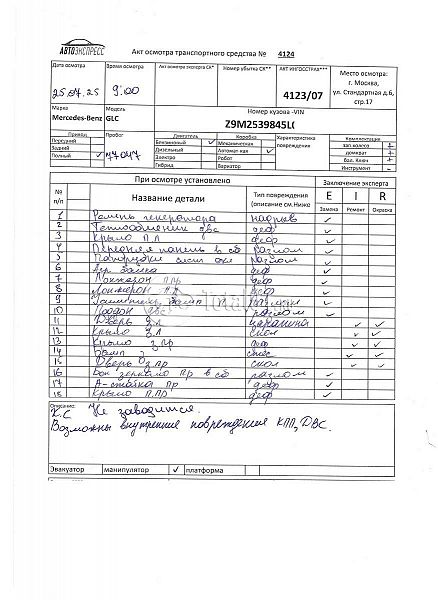 АВТОЭКСПРЕСС
Акт осмотра транспортного средства № 4124
Дата осмотра Время осмотра Акт осмотра эксперта СК* Номер убытка СК** АКТ ИНГОССТРАХ*** Место осмотра:
г. Москва,
ул. Стандартная д.6,
стр.17
25.07.25 9:00 4123/07
Марка Модель Номер кузова -VIN
Mercedes-Benz GLC Z9M2539845L
Привод Пробег Двигатель Коробка Характеристика повреждения Комплектация
Передний Бензиновый ✓ Механическая зап.колесо +
Задний Дизельный Автомат-кая ✓ домкрат +
Полный ✓ 77047 Электро Робот бал. Ключ +
Гибрид Вариатор Инструмент -
№ п/п При осмотре установлено Заключение эксперта
Название детали Тип повреждения (описание см.Ниже E I R
Замена Ремонт Окраска
1 Ремень генератора надрыв ✓
2 Теплообменник двс деф ✓
3 Крыло П Л деф ✓
4 Передняя панель в сб разлом ✓
5 разлом ✓
6 деф ✓
7 Лонжерон ППр деф ✓
8 Лонжерон деф ✓
9 ✓
10 Поддон двс разлом ✓
11 Дверь З Л царапина ✓ ✓
12 Крыло З Л скол ✓ ✓
13 Крыло З Пр деф ✓ ✓
14 Бамп З ✓ ✓
15 Дверь З Пр скол ✓ ✓
16 Бок зеркало Пр в сб разлом ✓
17 А-стойка Пр деф ✓
18 Крыло П.Пр деф ✓
Описание:
К.С Не заводится.
Возможны внутренние повреждения КПП, ДВС.
Эвакуатор манипулятор ✓ платформа